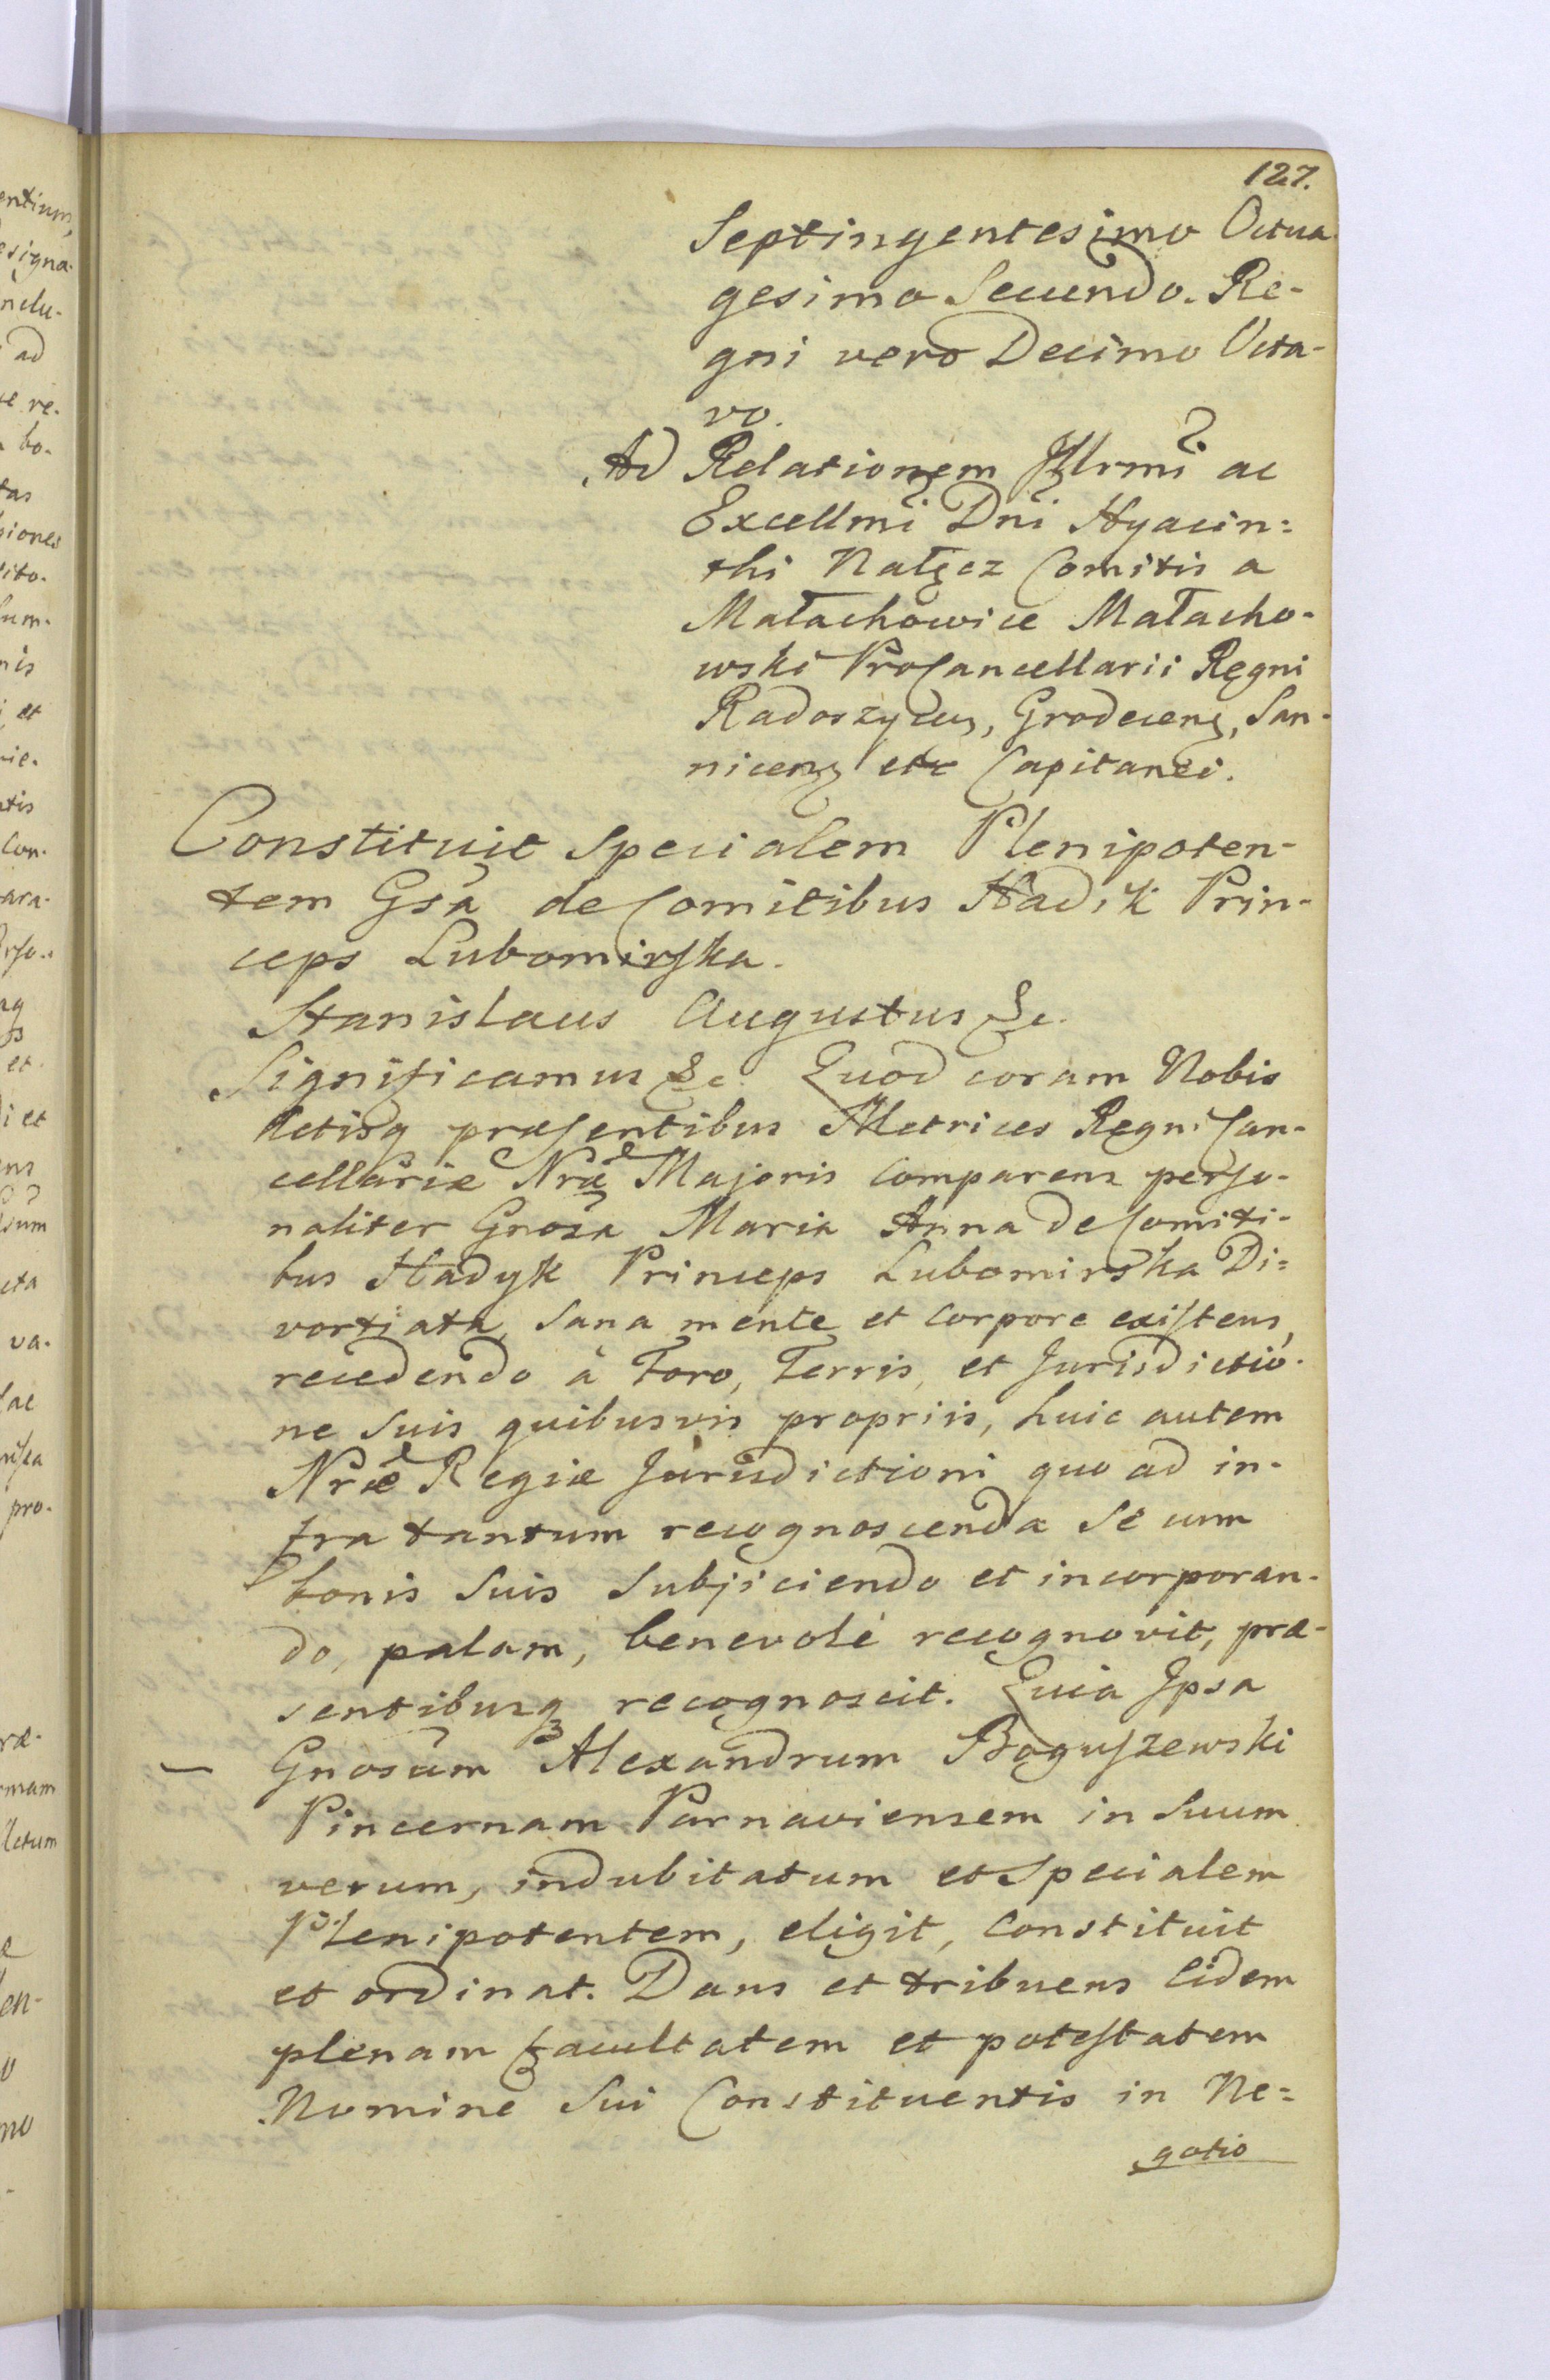 127.
Septingentesimo Octua-
gesimo Secundo. Re-
gni vero Decimo Octa-
vo.
Ad Relationem Jllrmi ac
Excellmi Dni Hyacin=
thi Nałęcz Comitis a
Małachowice Małacho-
wski ProCancellarii Regni
Grodecens, San-
nicens etc Capitanei.
Constituit Specialem Plenipoten-
tem Gsa de Comitibus Hadik Prin-
ceps Lubomirska.
Stanislaus Augustus &c.
Significamus &c. Quod coram Nobis
Actisq præsentibus Metrices Regni Can-
cellariæ Nræ Majoris comparens perso-
naliter Gnosa Maria Anna de Comiti-
bus Hadyk Princeps Lubomirska Di=
vortiata, sana mente et corpore existens,
recedendo à Foro, Terris, et Jurisdictio-
ne suis quibusvis propriis, huic autem
Nræ Regiæ Jurisdictioni quo ad in-
fra tantum recognoscenda se cum
bonis suis subjiciendo et incorporan-
do, palam, benevolè recognovit, præ-
sentibusq recognoscit. Quia Jpsa
Gnosum Alexandrum Boguszewski
Pincernam Parnaviensem in suum
verum, indubitatum et Specialem
Plenipotentem, eligit, constituit
et ordinat. Dans et tribuens Eidem
plenam facultatem et potestatem
Nomine Sui Constituentis in Ne=
gotio
entium,
esigna-
nclu-
ad
re-
bo-
tas
siones
dito-
sum-
nis
et
nie-
atis
Con-
ara-
et
i et
ens
sum
cta
va-
lac
pro-
ræ-
rmam
lctum
en-
mo